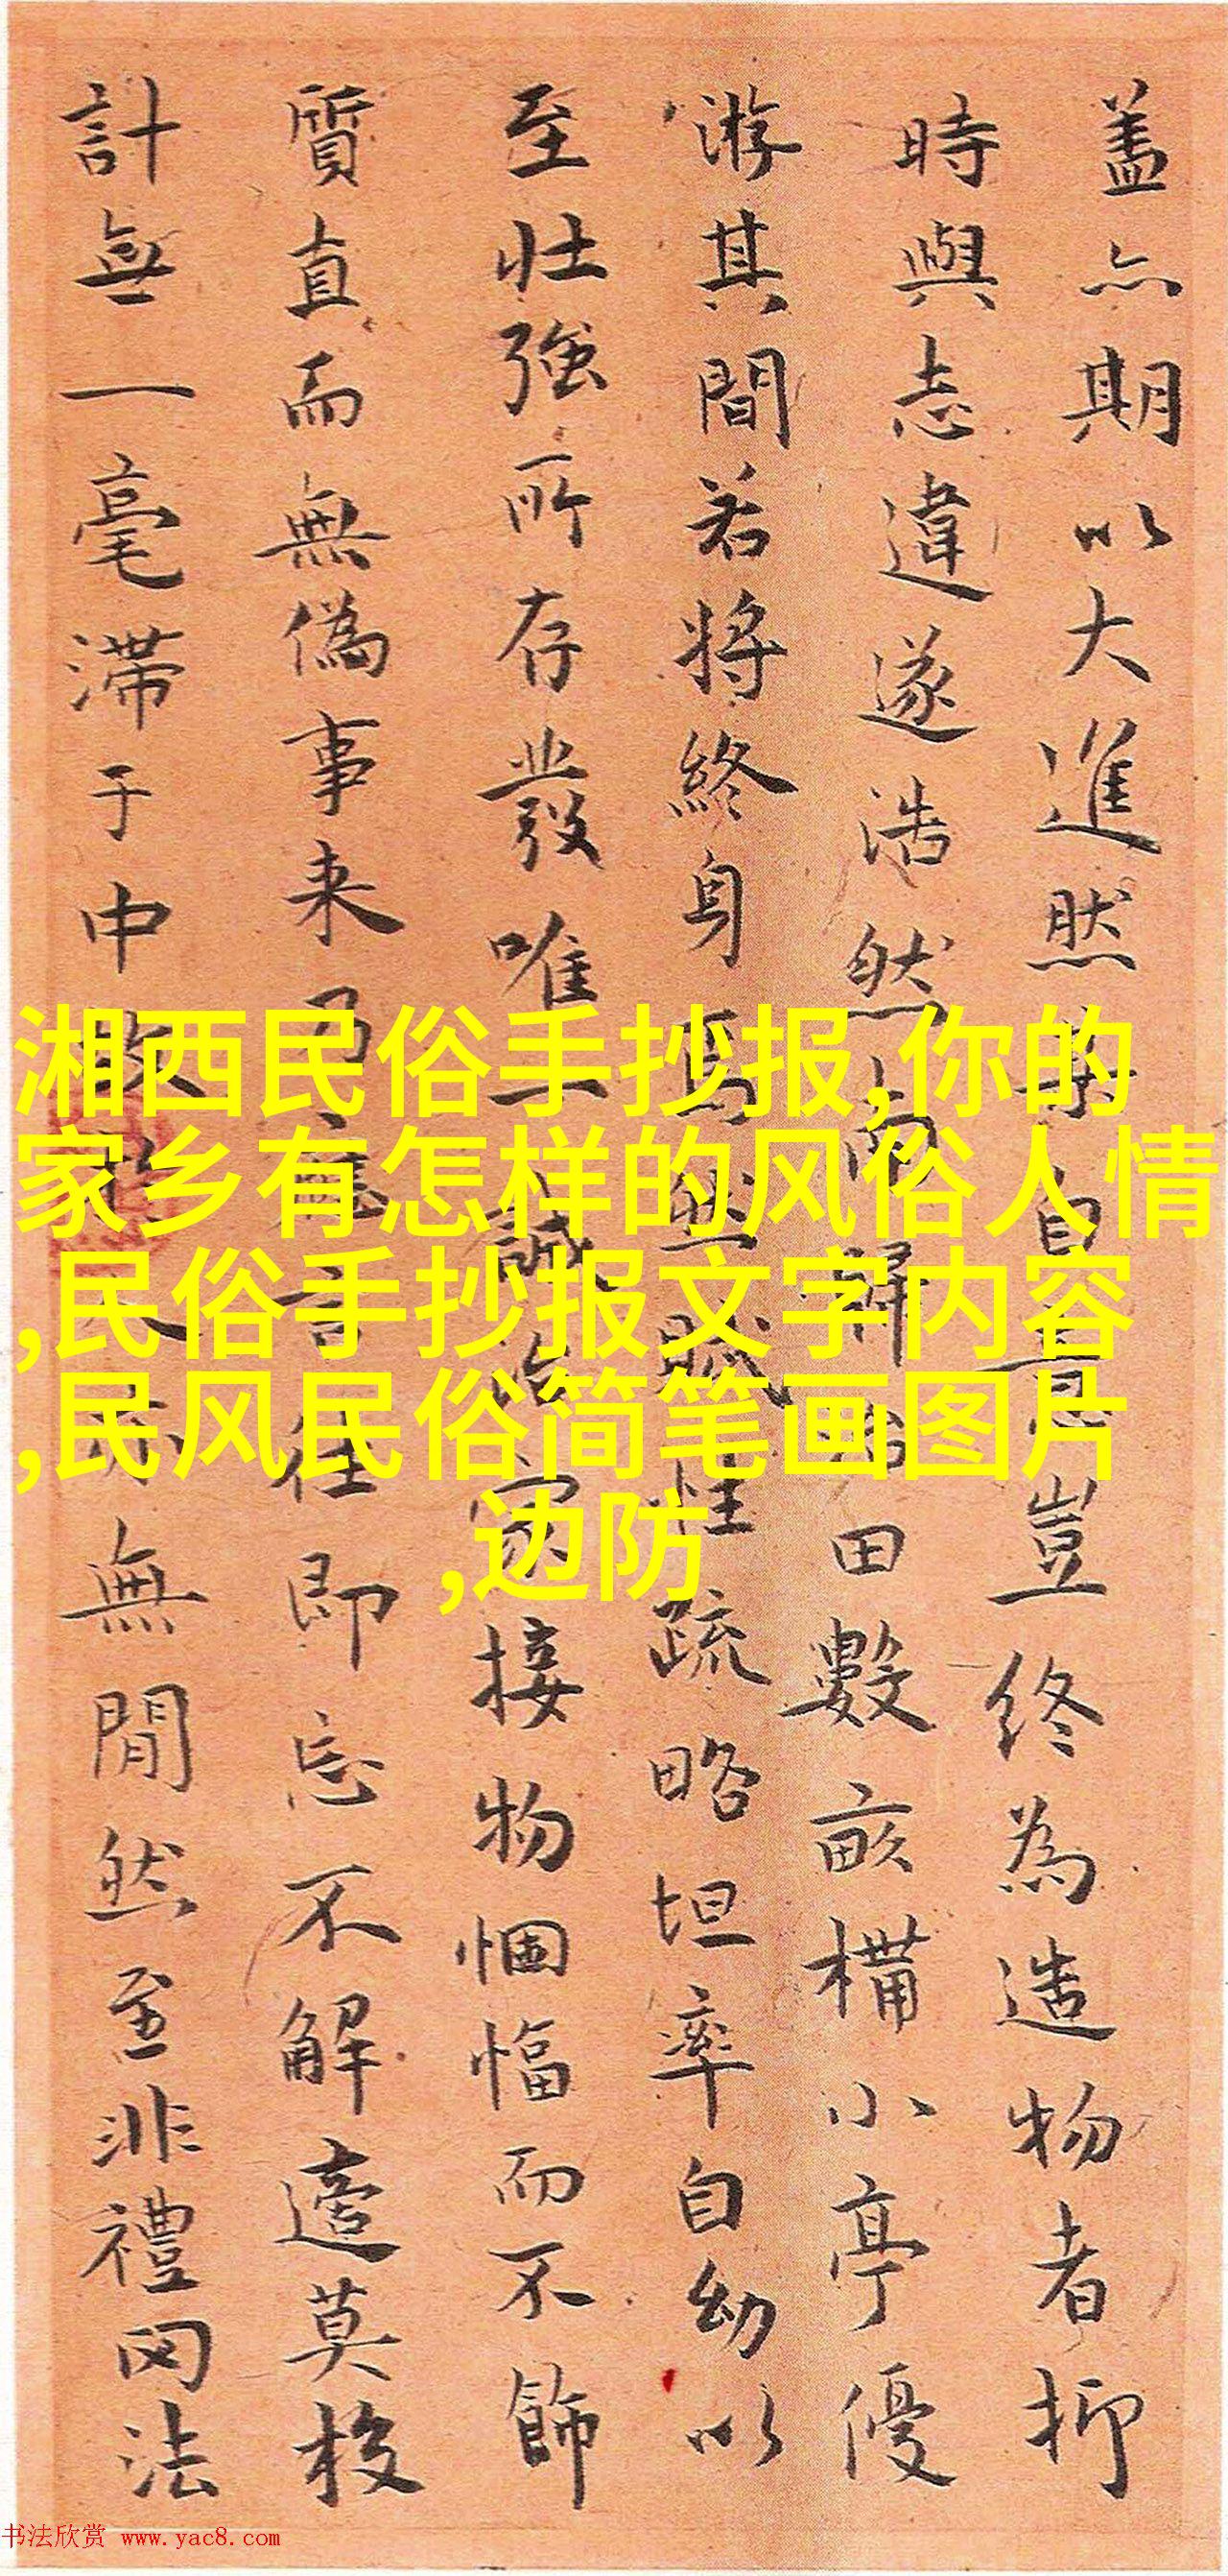 盖亦期以大進然
皇豈终為造物者抑
時與志違遂浩然
田數畝構小亭優
游其間若將終身焉
然
性疏略坦率自幼以
至壯強所存發唯一誠
家接物悃愊而不飾
質直而無偽事来乃
言任即忘不解邅莫校
計無一毫滯于中故
無閒然至非禮罔法
湘西民俗手抄报,你的
家乡有怎样的风俗人情
,民俗手抄报文字内容
,民风民俗简笔画图片
,边防
书法欣赏 www.yac8.com